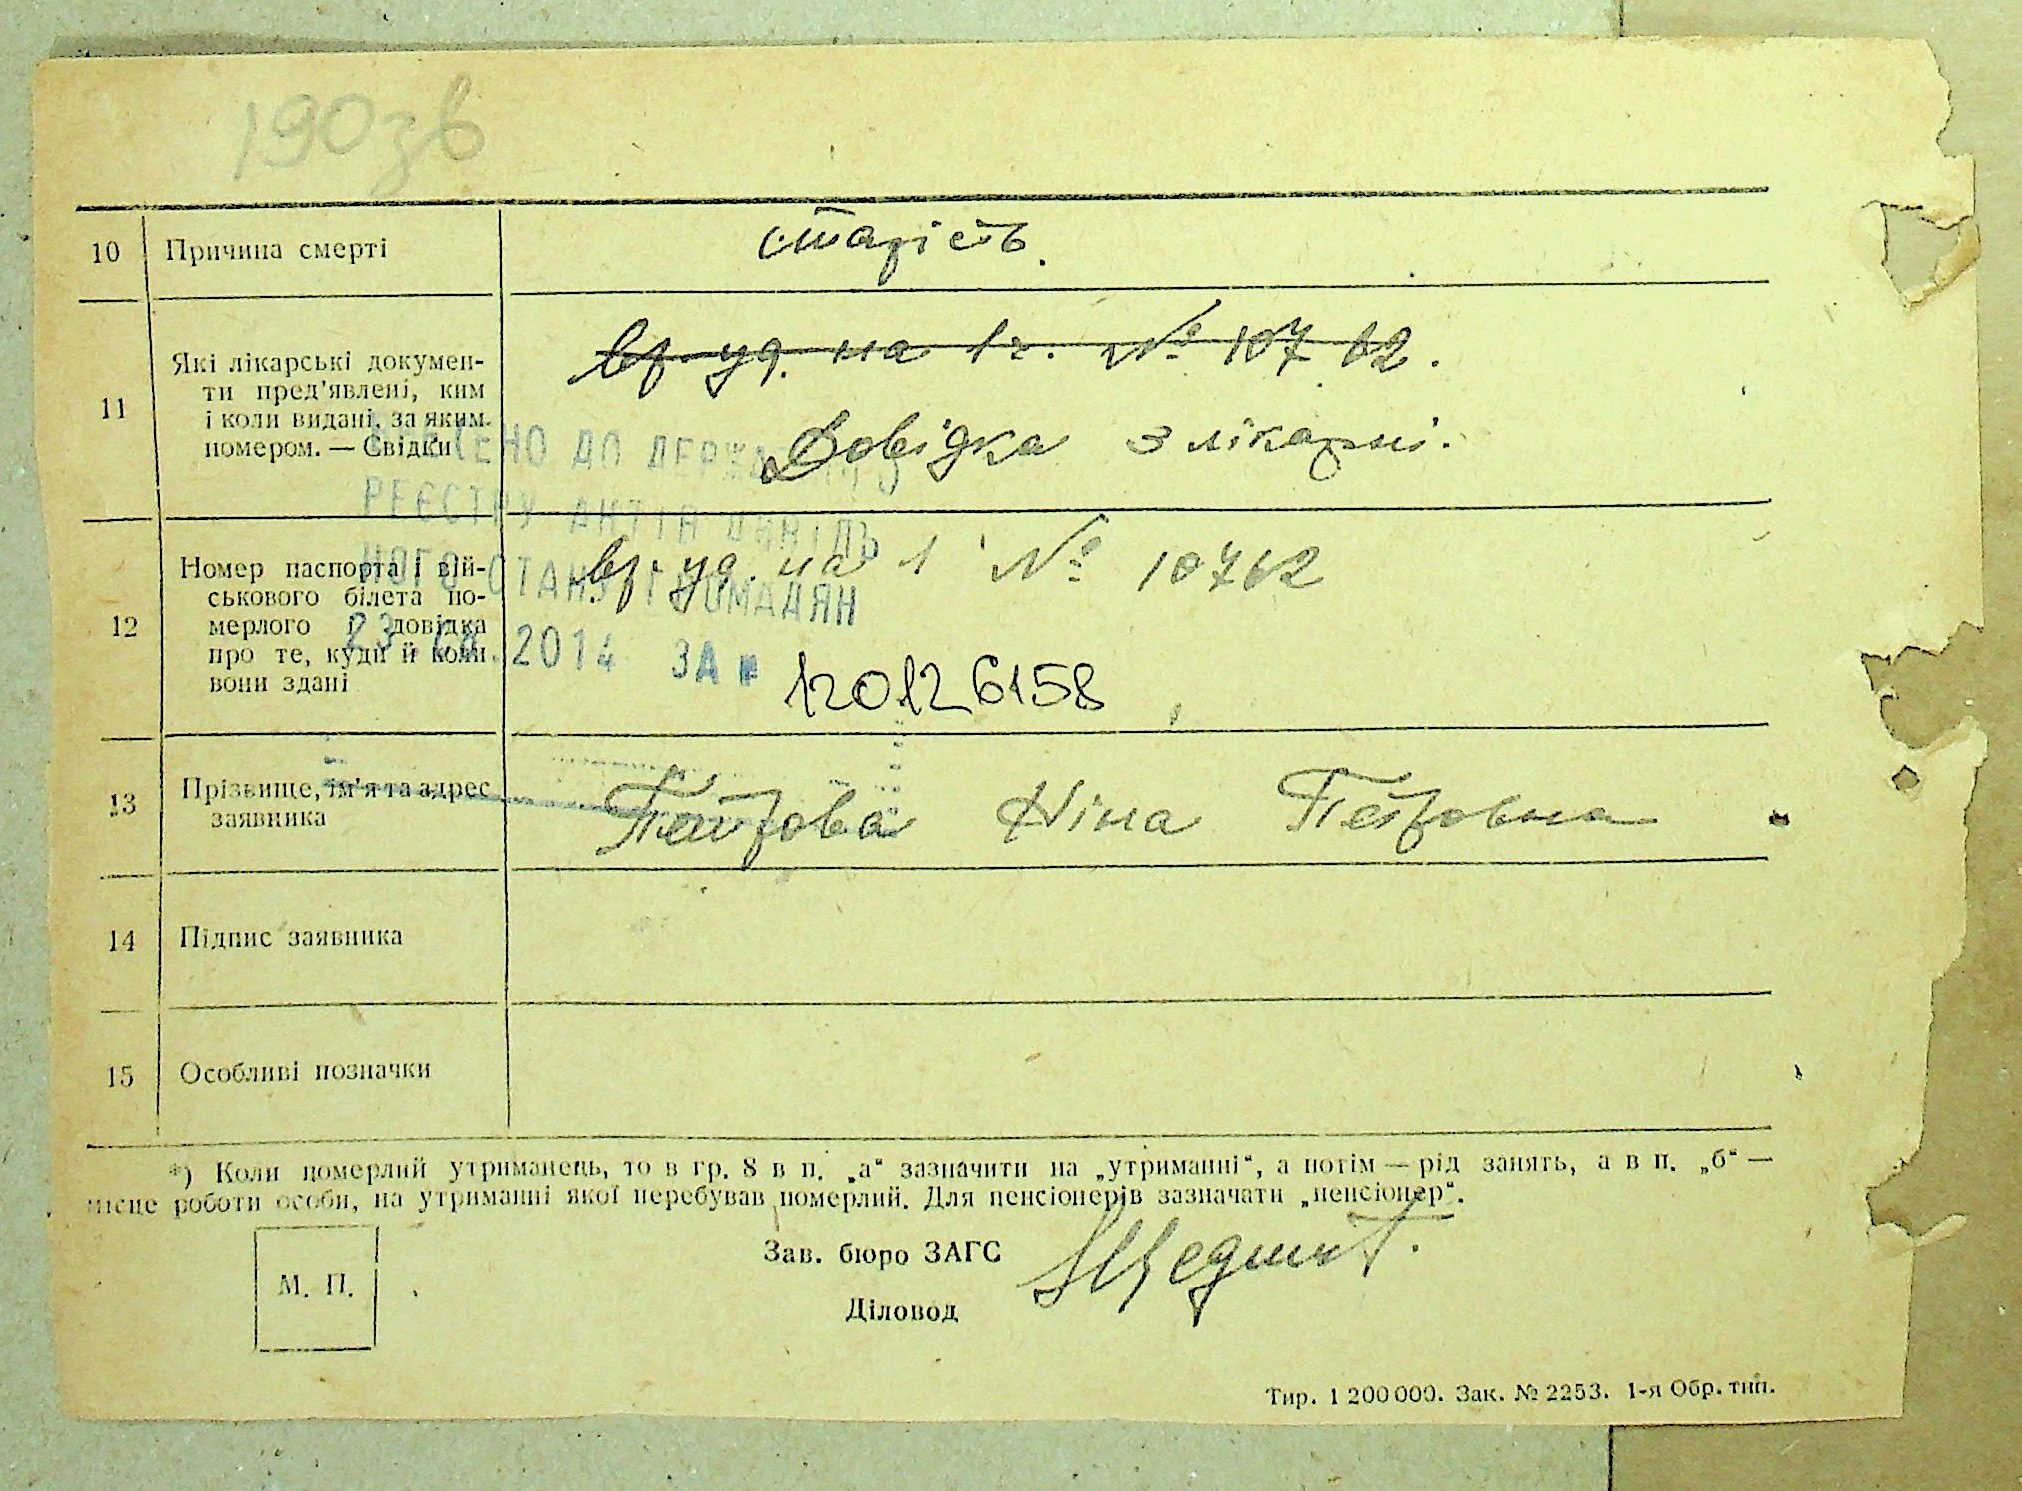 190 зв
10 Причина смерті старість.
11 Які лікарські докумен-
ти пред'явлені, ким
і коли видані, за яким
номером. — Свідки
вр. уд. на 1 г. № 10762.
Довідка з лікарні.
ВНЕСЕНО ДО ДЕРЖАВНОГО
РЕЄСТРУ АКТІВ ЦИВІЛЬ
НОГО СТАНУ ГРОМАДЯН
2014 ЗА №
12 Номер паспорта і вій-
ськового білета по-
мерлого і довідка
про те, куди й коли
вони здані
вр. уд. на 1 № 10762
120126158
13 Прізвище, ім'я та адрес
заявника
Петрова Ніна Петровна
14 Підпис заявника
15 Особливі позначки
*) Коли померлий утриманець, то в гр. 8 в п. „а“ зазначити на „утриманні“, а потім — рід занять, а в п. „б“ —
місце роботи особи, на утриманні якої перебував померлий. Для пенсіонерів зазначати „пенсіонер“.
М. П.
Зав. бюро ЗАГС
Діловод
Тир. 1 200 000. Зак. № 2253. 1-я Обр. тип.